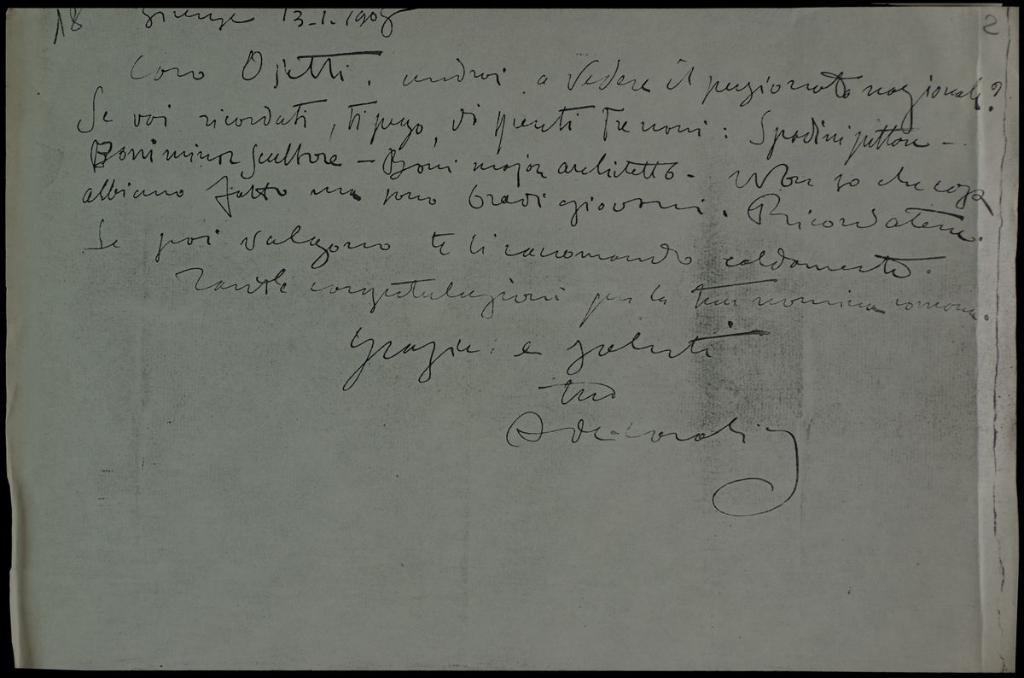 18 Firenze 13-1-1908
2
Caro Ojetti, andrai a vedere il pensionato nazionale?
Se vai ricordati, ti prego, di questi tre nomi: Spadini pittore -
Boni minor scultore - Boni major architetto - Non so che cosa
abbiano fatto ma sono bravi giovani. Ricordatene.
Se poi valgono te li raccomando caldamente.
Tante congratulazioni per la tua nomina romana.
Grazie e saluti
tuo